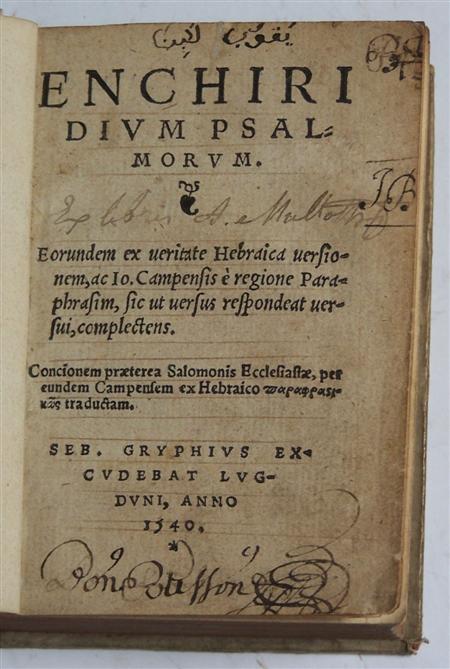 ENCHIRI
DIVM PSAL-
MORVM.
Ex libris A.
J B.
Eorundem ex ueritate Hebraica uersio-
nem, ac Io. Campensis è regione Para-
phrasim, sic ut uersus respondeat uer-
sui, complectens.
Concionem præterea Salomonis Ecclesiastæ, per
eundem Campensem ex Hebraico παραφραστι-
κῶς traductam.
SEB. GRYPHIVS EX-
CVDEBAT LVG-
DVNI, ANNO
1540.